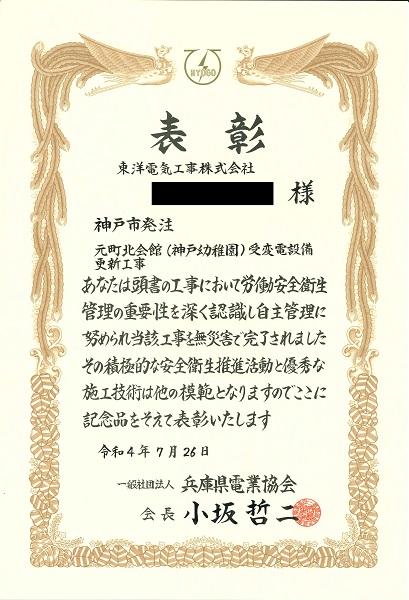 HYOGO
表彰
東洋電気工事株式会社
様
神戸市発注
元町北会館（神戸幼稚園）受変電設備
更新工事
あなたは頭書の工事において労働安全衛生
管理の重要性を深く認識し自主管理に
努められ当該工事を無災害で完了されました
その積極的な安全衛生推進活動と優秀な
施工技術は他の模範となりますのでここに
記念品をそえて表彰いたします
令和4年7月26日
一般社団法人 兵庫県電業協会
会長 小坂哲二